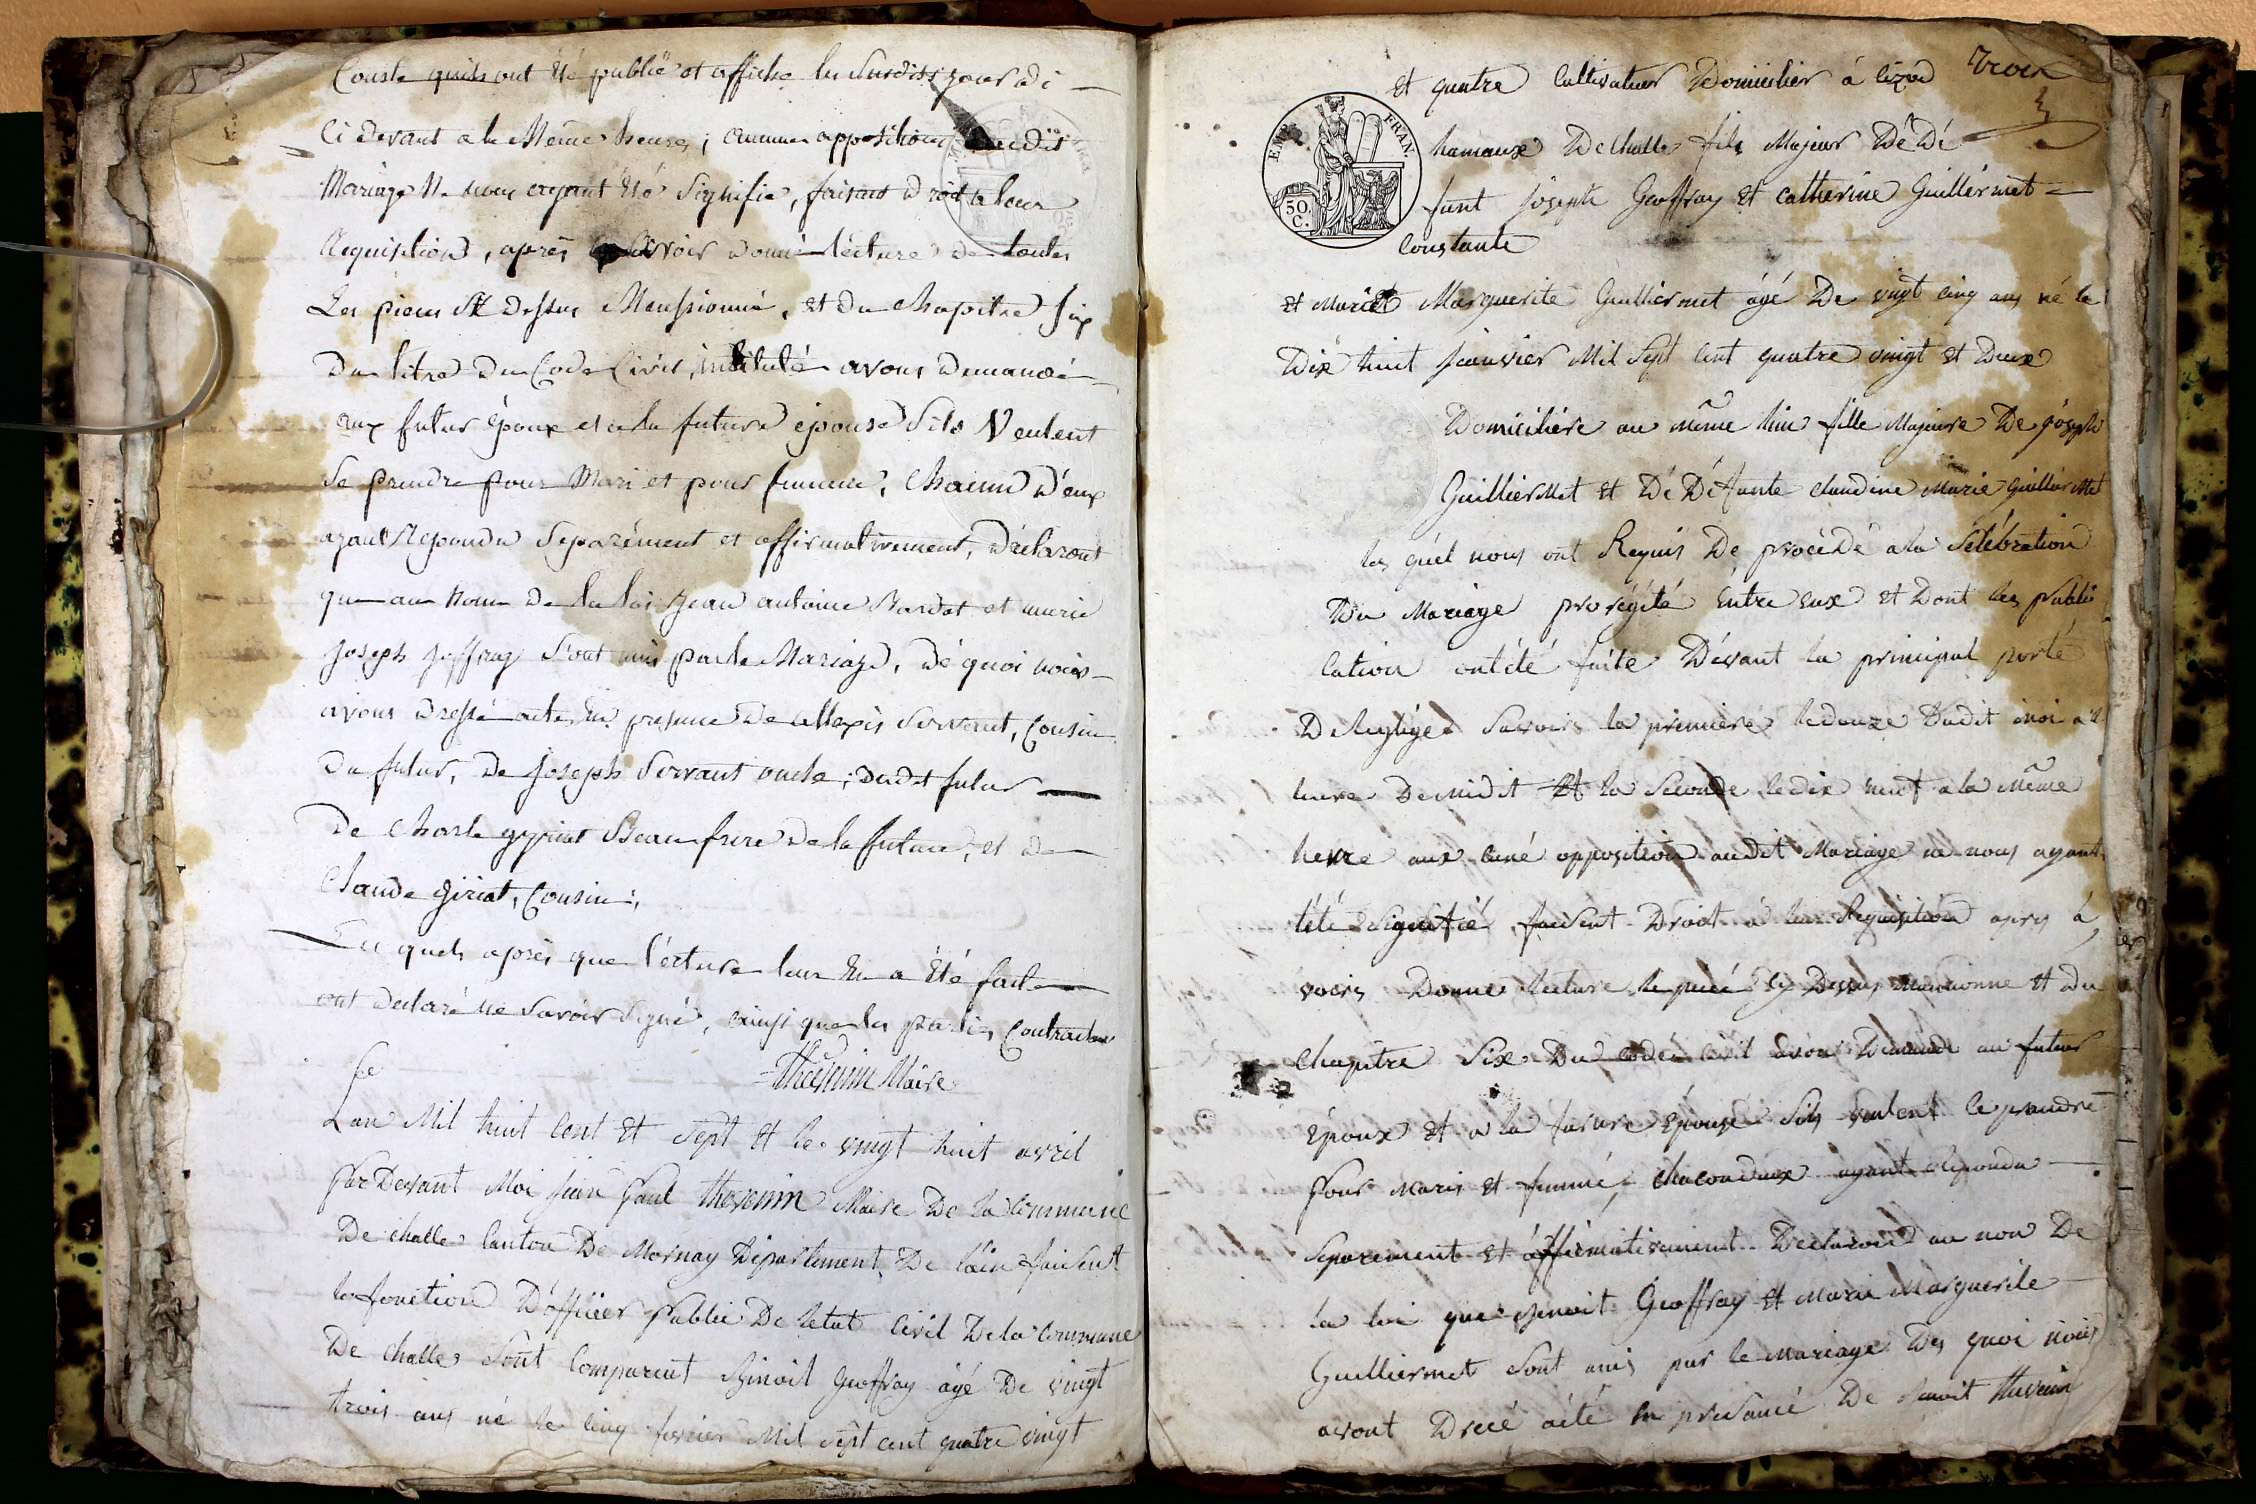 Conste quils ont été publié et affiche les Susdits jour di
Ci devant a la Meme heure; aucunes oppositions audit
Mariage Ne nous ayant été Signifie, faisant droit a leur
Requisition, après avoir donné lecture de toutes
Les pieces Ci dessus Mensionné, et du Chapitre six
du titre du Code Civil, intitulé avons Demandé
aux futur époux et a la future épouse Sils Veulent
Se prendre pour Mari et pour femme, Chacun d'eux
ayant Repondu Separément et affirmativement, Déclarons
que au Nom de la loi Jean antoine Bardet et marie
joseph joffray Sont unis par le Mariage, dé quoi nous
avons dressé acte, En presence De Allexis Servant, Cousin
du futur, De joseph Servant oncle; dudit futur
De Charle gyriat Beaufrere de la future, et de
Claude giriat, Cousin;
Les quels après que lécture leur En a été faite
ont declaré ne Savoir Signé, ainsi que les parties Contractan
Thevenin Maire
Lan Mil huit Cent et sept et le vingt huit avril
Par Devant Moi jean Paul thevenin Maire De la Commune
De challe Canton De Mornay Département De lain faisent
la fonction D'officier Public De letat Civil De la Commune
De challe Sont Comparent Binoit Geoffray agé De vingt
trois ans né le Cinq fevrier Mil sept cent quatre vingt
trois
et quatre Cultivateur Domicilier á
hamaux De challe fils Majeur Dé Dé
funt joseph Geoffray et Catherine Guillermet
Constante
et Marie Marguerite Guilliermet agé De vingt cinq ans né le
Dix huit janvier Mil Sept Cent quatre vingt et Deux
Domiciliere au même lieu fille Majeure De joseph
Guilliermet et Dé Défunte claudine Marie Guilliermet
les quél nous ont Requis De procédé a la Sélébration
Du Mariage progété Entre eux et Dont les Publi
cation ont été faite Dévant la principal porté
D léglige Savoir la premiere le douze Dudit moi a l
heure De midit Et la Seconde le dix neuf a la même
heure aux cune opposition audit Mariage ne nous ayant
tété Signifié faisent Droit á leur Requisition apres á
voirs Donne lecture de piecé Cy Dessus mansionne et du
Chapitre Six Du codé Civil avons Demandé au futur
Epoux et a la future Epouse Sils veulent Ce prandre
Pour Maris et femme, chacon deux ayant Reponda
Separement et affirmativement Declarons au non De
la loi que Benoit Geoffray et Marie Marguerite
Guilliermet Sont unis par le Mariage Des quoi nous
avont Drecé acté En presancé De Benoit thevenin
EMP. FRAN.
50 C.